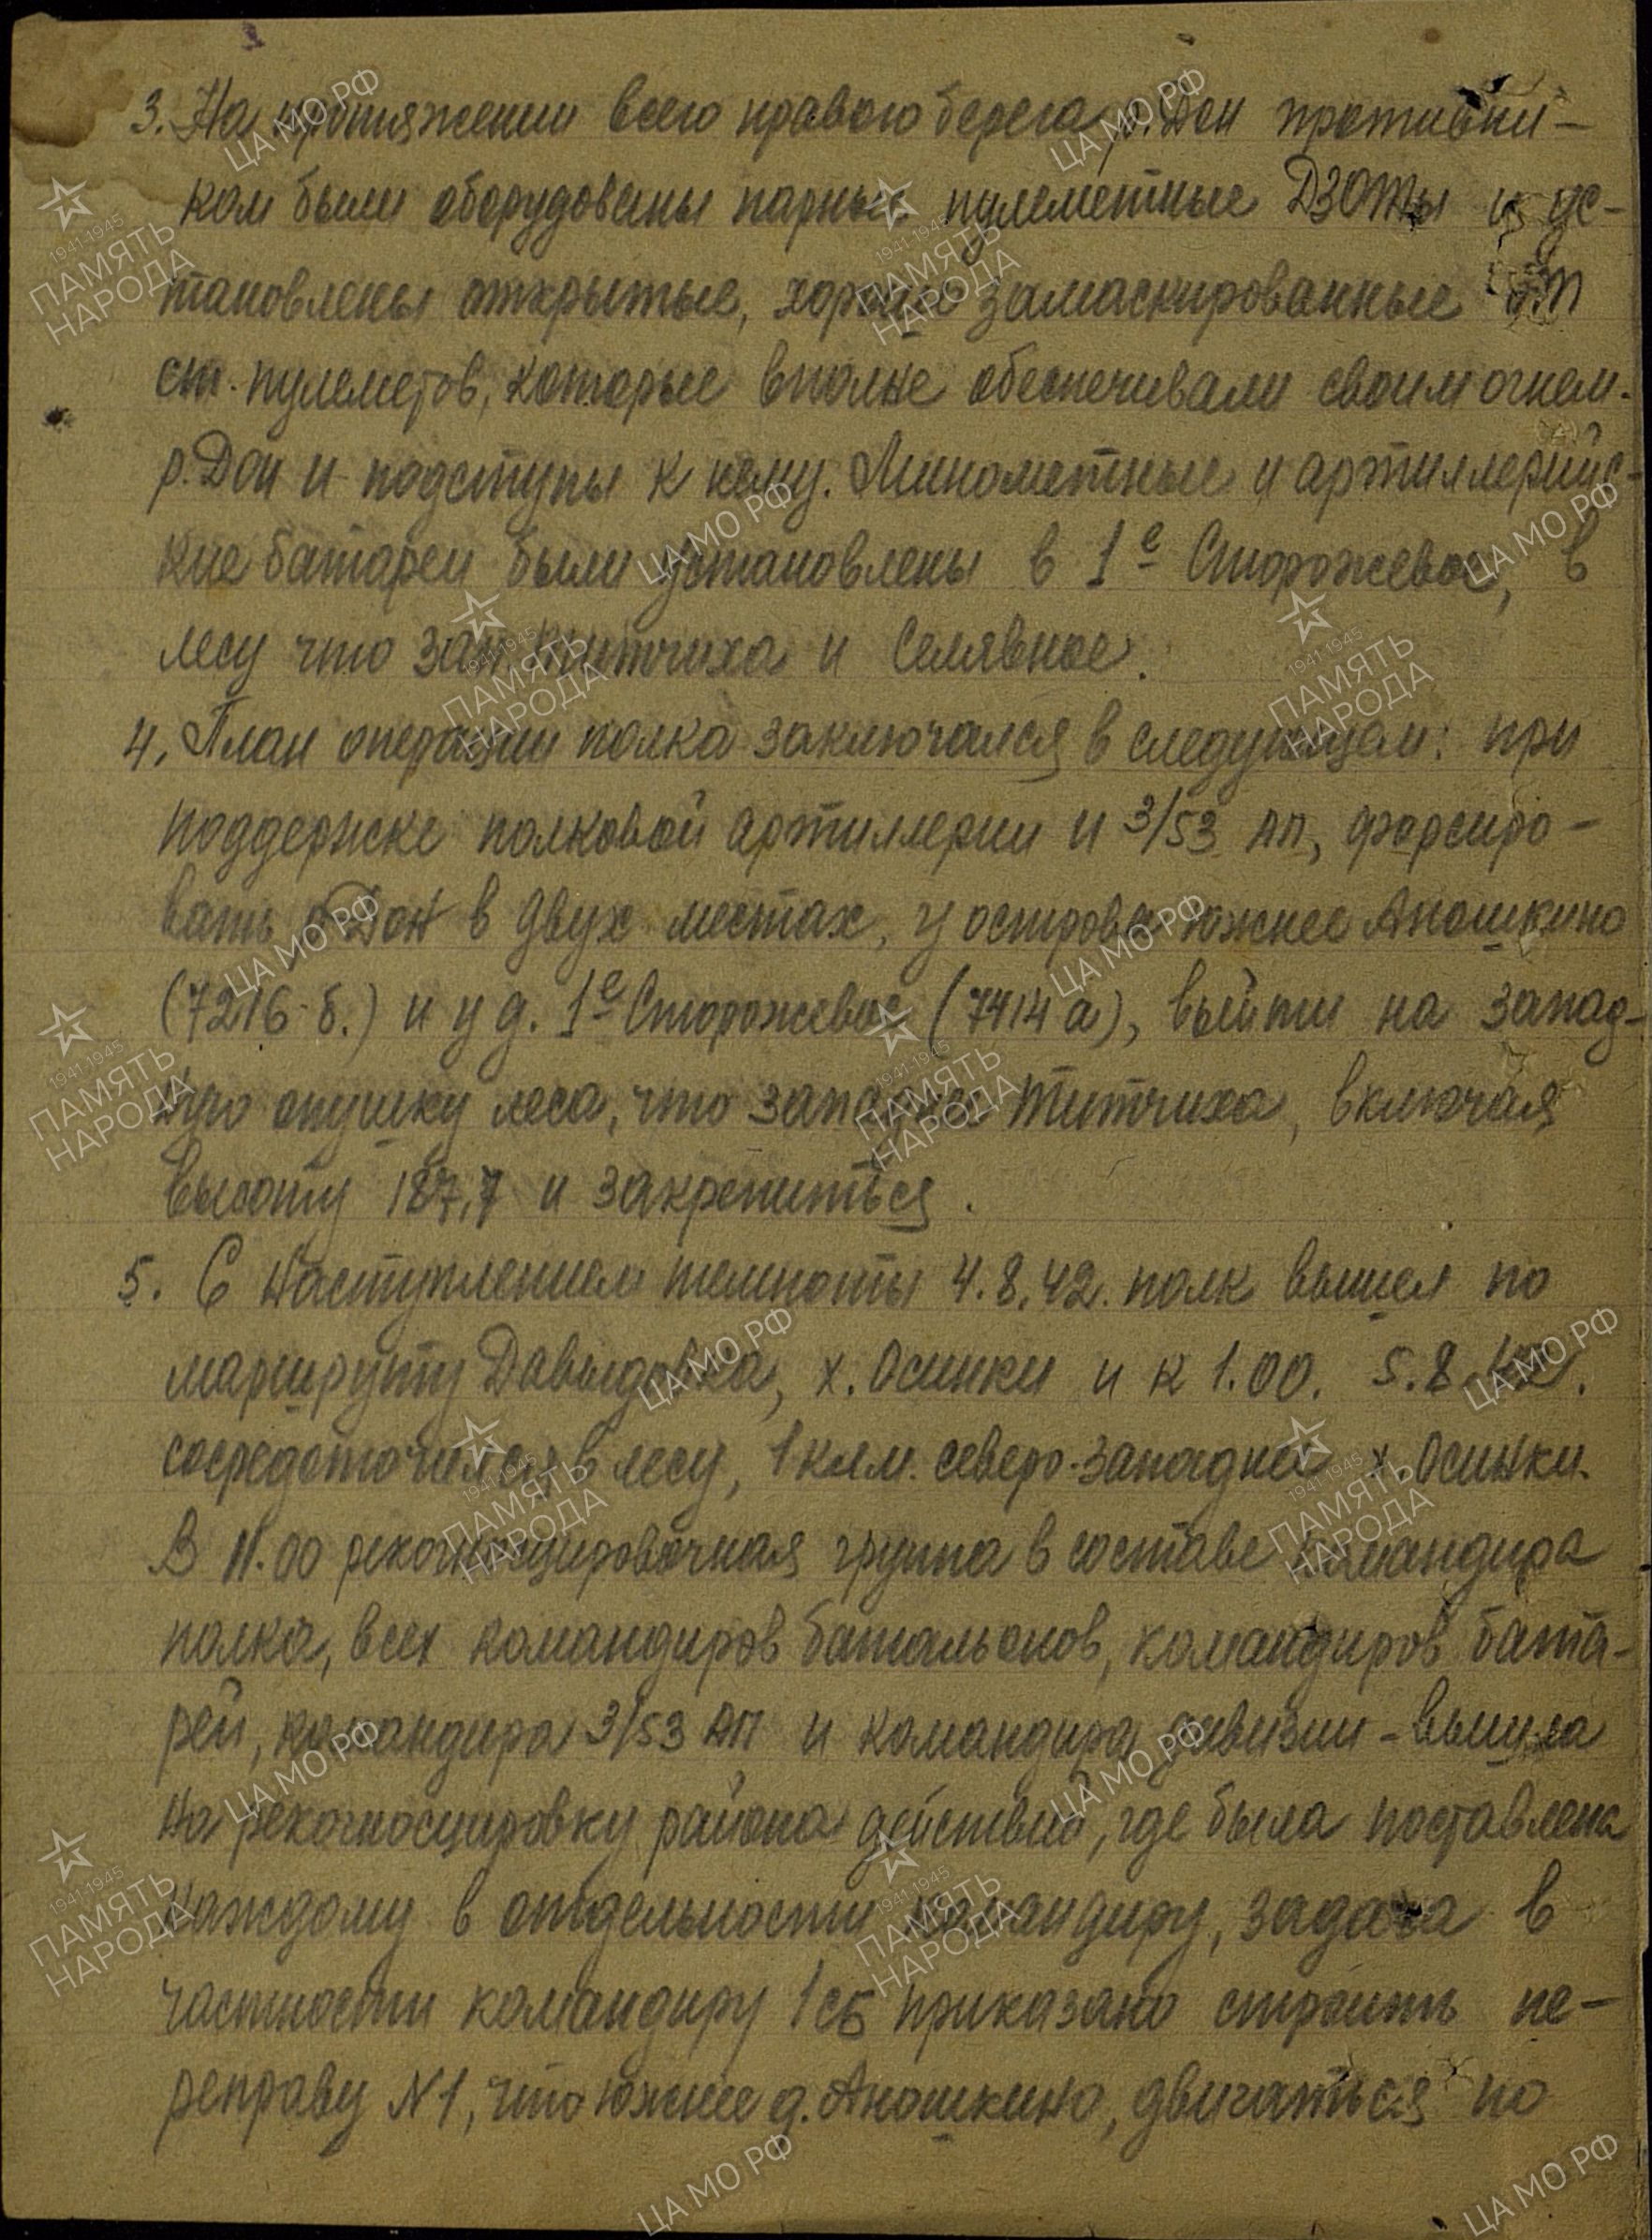 3. На протяжении всего правого берега р. Дон противни-
ком были оборудованы парные пулеметные ДЗОТы и ус-
тановлены открытые, хорошо замаскированные ОТ
ст. пулеметов, которые вполне обеспечивали своим огнем
р. Дон и подступы к нему. Минометные и артиллерийс-
кие батареи были установлены в 1е Сторожевое, в
лесу что зап. Титчиха и Селявное.
4. План операции полка заключался в следующем: при
поддержке полковой артиллерии и 3/53 АП, форсиро-
вать р. Дон в двух местах, у острова южнее Аношкино
(7216-б.) и у д. 1е Сторожевое (7414 а), выйти на запад-
ную опушку леса, что западнее Титчиха, включая
высоту 187,7 и закрепиться.
5. С наступлением темноты 4.8.42. полк вышел по
маршруту Давыдовка, х. Осинки и к 1.00. 5.8.42.
сосредоточился в лесу, 1 клм. северо-западнее х. Осинки.
В 11.00 рекогносцировочная группа в составе командира
полка, всех командиров батальонов, командиров бата-
рей, командира 3/53 АП и командира дивизии - вышла
на рекогносцировку района действий, где была поставлена
каждому в отдельности командиру, задача в
частности командиру 1 сб приказано строить пе-
реправу N1, что южнее д. Аношкино, двигаться по
ЦА МО РФ
1941-1945
ПАМЯТЬ
НАРОДА